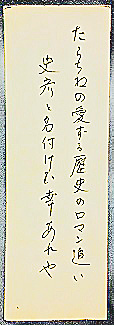 たらちねの愛する歴史のロマン追い
史彦と名付けむ幸あれや